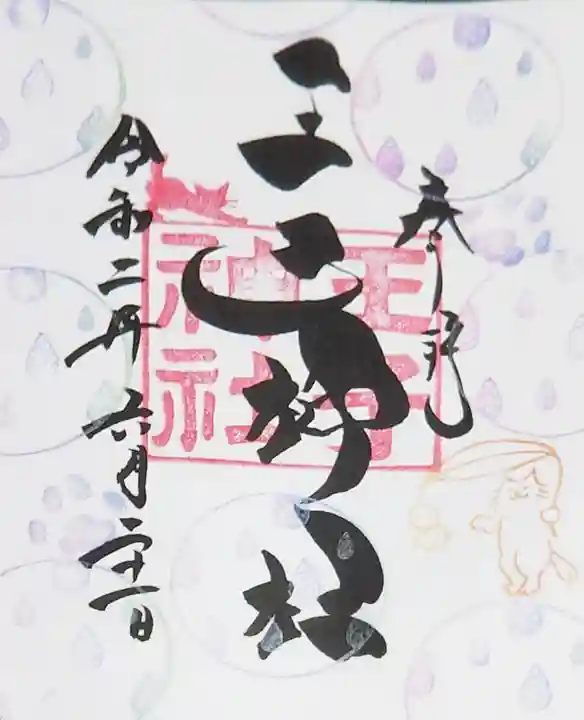 奉拝
王子神社
王子
神社
令和二年六月二十一日